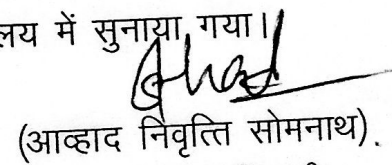 लय में सुनाया गया।
(आव्हाद निवृत्ति सोमनाथ).